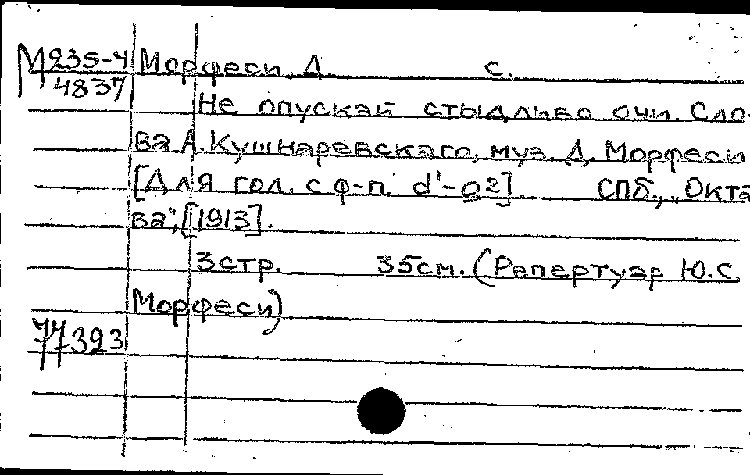 М 235-4 Морфеси, Д. с.
4837
Не опускай стыдливо очи. Сло-
ва А. Кушнаревскаго, муз. Д. Морфеси
[Для гол. с ф-п. d'-g²] СПб., „Окта
ва", [1913].
3 стр. 35 см. (Репертуар Ю.С.
Морфеси)
77393